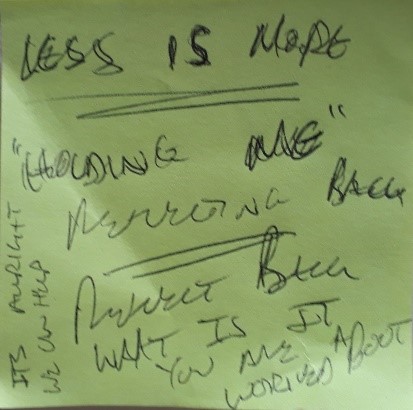 LESS IS MORE
"HOLDING ME"
REFLECTING BACK
REFLECT BACK
WHAT IS IT
YOU ARE
WORRIED ABOUT
ITS ALRIGHT
WE CAN HELP